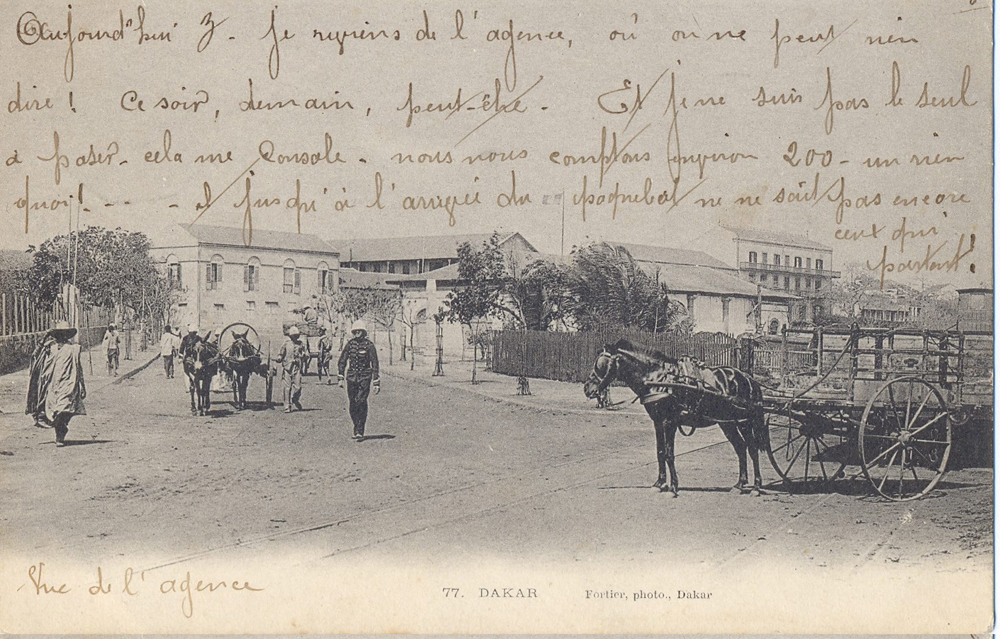 Aujourd'hui 3. Je reviens de l'agence, où on ne peut rien
dire! Ce soir, demain, peut-être. Et je ne suis pas le seul
à poser. cela me console. nous nous comptons environ 200. un rien
quoi! jusqu'à l'arrivée du paquebot ne ne sait pas encore
ceux qui
partart!
Vue de l'agence
77. DAKAR
Fortier, photo., Dakar